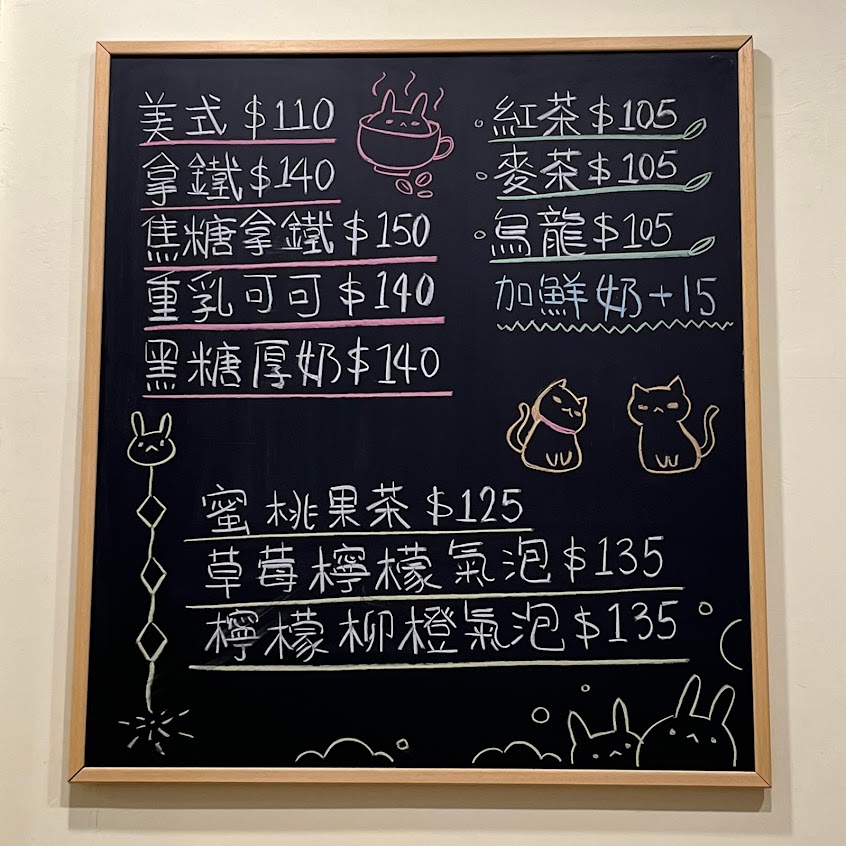 美式 $110
拿鐵 $140
焦糖拿鐵 $150
重乳可可 $140
黑糖厚奶 $140
紅茶 $105
麥茶 $105
烏龍 $105
加鮮奶+15
蜜桃果茶 $125
草莓檸檬氣泡 $135
檸檬柳橙氣泡 $135